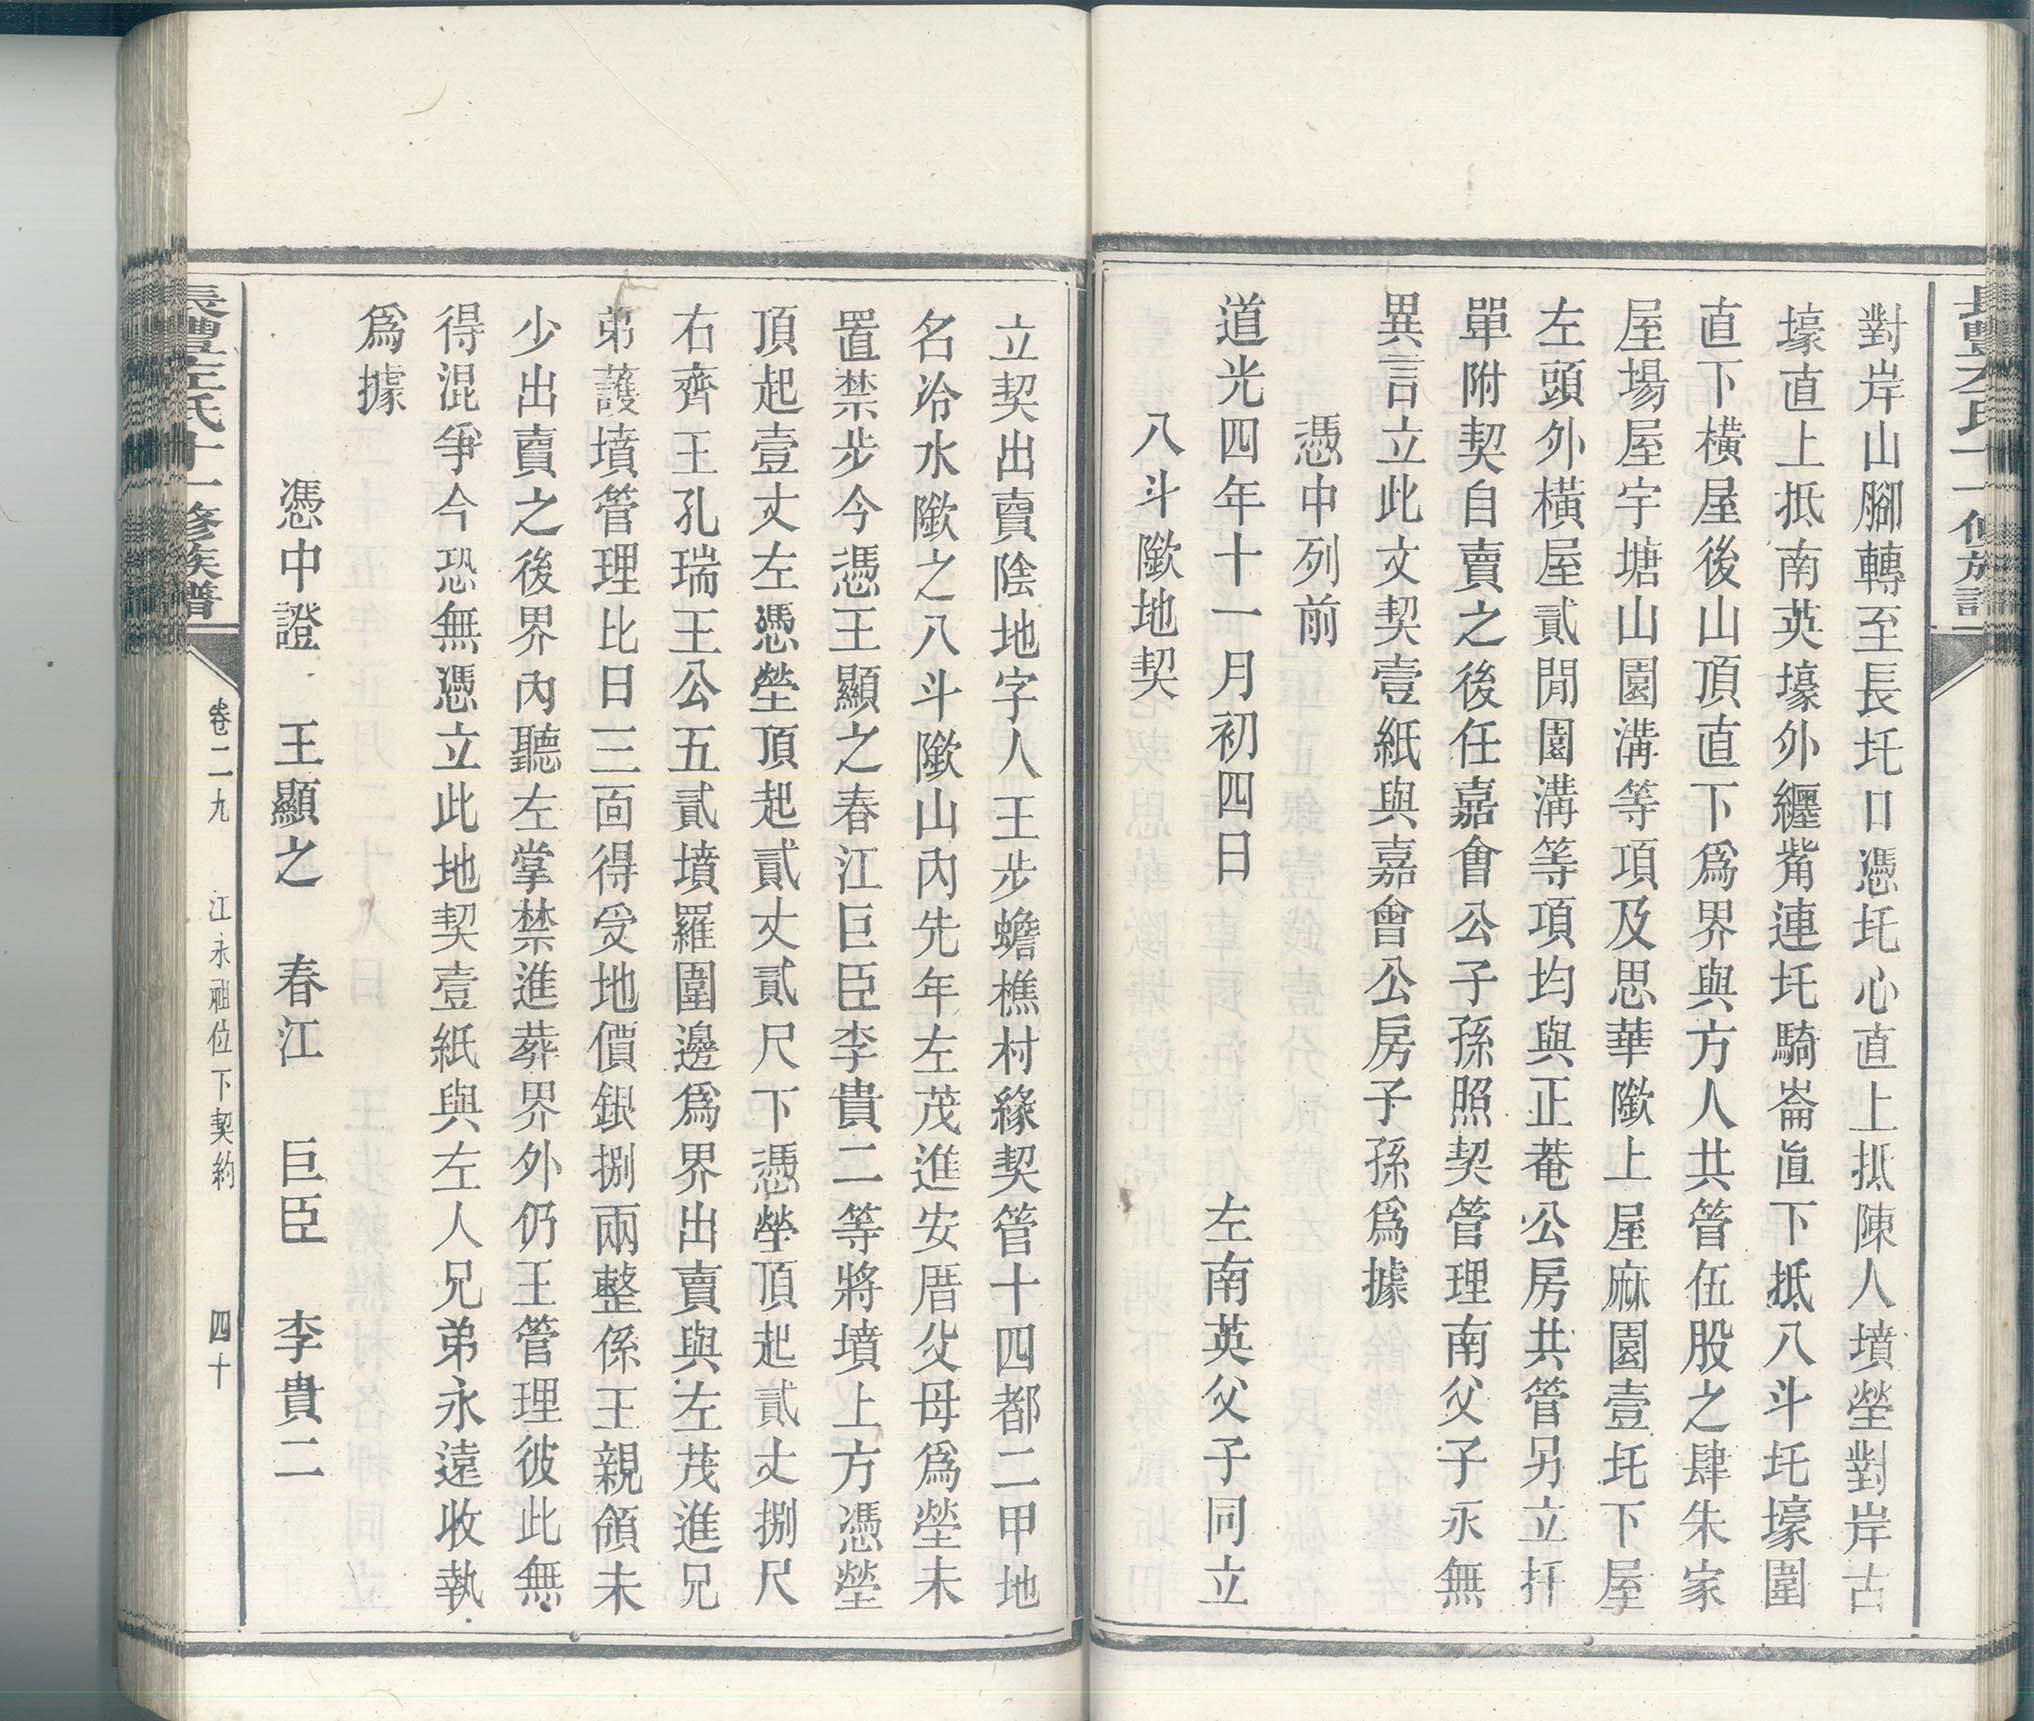 對岸山腳轉至長圫口憑圫心直上抵陳人墳塋對岸古
壕直上抵南英壕外纏嘴連圫騎崙直下抵八斗圫壕圍
直下橫屋後山頂直下為界與方人共管伍股之肆朱家
屋場屋宇塘山園溝等項及思華隞上屋麻園壹圫下屋
左頭外橫屋貳間園溝等項均與正菴公房共管另立扦
單附契自賣之後任嘉會公子孫照契管理南父子永無
異言立此文契壹紙與嘉會公房子孫為據
憑中列前
道光四年十一月初四日 左南英父子同立
八斗隞地契
立契出賣陰地字人王步蟾樵村緣契管十四都二甲地
名冷水隞之八斗隞山內先年左茂進安厝父母為塋未
置禁步今憑王顯之春江巨臣李貴二等將墳上方憑塋
頂起壹丈左憑塋頂起貳丈貳尺下憑塋頂起貳丈捌尺
右齊王孔瑞王公五貳墳羅圍邊為界出賣與左茂進兄
弟護墳管理比日三面得受地價銀捌兩整係王親領未
少出賣之後界內聽左掌禁進葬界外仍王管理彼此無
得混爭今恐無憑立此地契壹紙與左人兄弟永遠收執
為據
憑中證 王顯之 春江 巨臣 李貴二
長豐左氏十一修族譜 卷二九 江永祖位下契約 四十